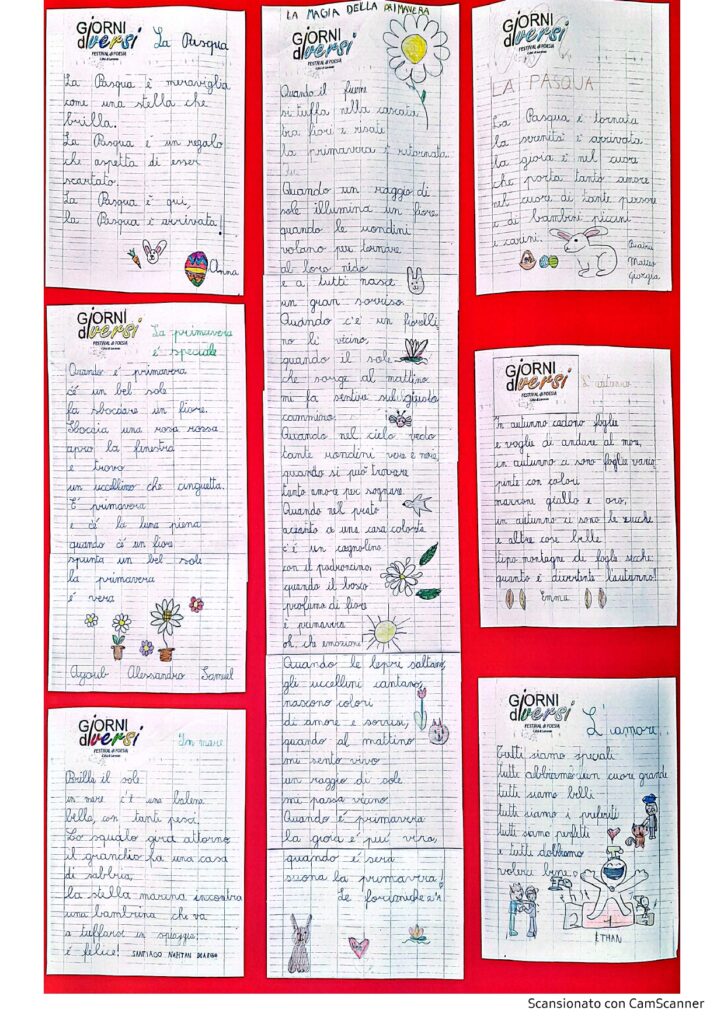 GIORNI
diversi
FESTIVAL di POESIA
La Pasqua
La Pasqua è meraviglia
come una stella che
brilla.
La Pasqua è un regalo
che aspetta di esser
scartato.
La Pasqua è qui,
la Pasqua è arrivata!
Anna
GIORNI
diversi
FESTIVAL di POESIA
La primavera
è speciale
Quando è primavera
c'è un bel sole
fa sbocciare un fiore.
Sboccia una rosa rossa
apro la finestra
e trovo
un uccellino che cinguetta.
E' primavera
e c'è la luna piena
quando c'è un fiore
spunta un bel sole
la primavera
è vera
Ayoub Alessandro Samuel
GIORNI
diversi
FESTIVAL di POESIA
In mare
Brilla il sole
in mare c'è una balena
bella, con tanti pesci.
Lo squalo gira attorno
il granchio fa una casa
di sabbia,
la stella marina incontra
una bambina che va
a tuffarsi in spiaggia:
è felice! SANTIAGO NAHTAN
LA MAGIA DELLA PRIMAVERA
GIORNI
diversi
FESTIVAL di POESIA
Quando il fiume
si tuffa nella cascata
tra fiori e risate
la primavera è ritornata
Quando un raggio di
sole illumina un fiore
quando le rondini
volano per tornare
al loro nido
e a tutti nasce
un gran sorriso.
Quando c'è un fiorelli
no lì vicino,
quando il sole
che sorge al mattino
mi fa sentire sul giusto
cammino.
Quando nel cielo vedo
tante rondini vere e nere,
quando si può trovare
tanto amore per sognare.
Quando nel prato
accanto a una casa colorata
c'è un cagnolino
con il padroncino,
quando il bosco
profuma di fiore
è primavera
oh, che emozione!
Quando le lepri saltano,
gli uccellini cantano,
nascono colori
di amore e sorrisi,
quando al mattino
mi sento vivo
un raggio di sole
mi passa vicino.
Quando è primavera
la gioia è più vera,
quando è sera
suona la primavera!
Le
GIORNI
diversi
FESTIVAL di POESIA
LA PASQUA
La Pasqua è tornata
la serenità è arrivata
la gioia è nel cuore
che porta tanto amore
nel cuore di tante persone
e di bambini piccini
e carini.
Matteo
Giorgia
GIORNI
diversi
FESTIVAL di POESIA
L'autunno
In autunno cadono foglie
e voglie di andare al mare,
in autunno ci sono foglie varie,
pinte con colori
marrone giallo e oro,
in autunno ci sono le zucche
e altre cose belle
tipo montagne di foglie secche:
quanto è divertente l'autunno!
Emma
GIORNI
diversi
FESTIVAL di POESIA
L'amore..
Tutti siamo speciali
tutti abbiamo un cuore grande
tutti siamo belli
tutti siamo i preferiti
tutti siamo perfetti
e tutti dobbiamo
volerci bene.
2 1 3
ETHAN
Scansionato con CamScanner